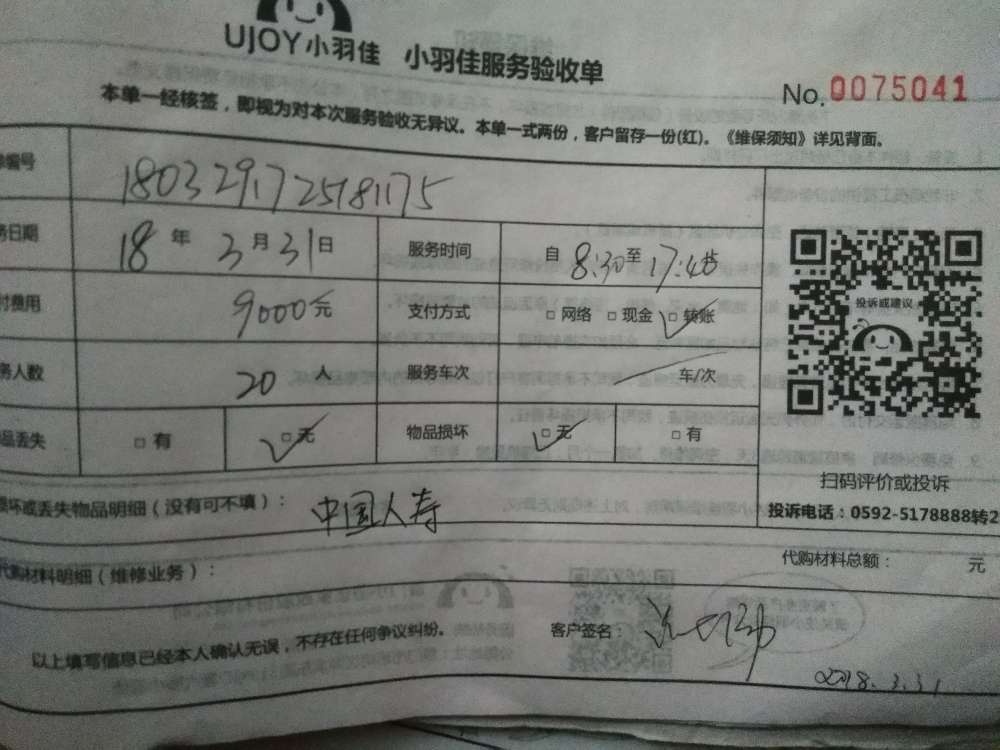 UJOY小羽佳 小羽佳服务验收单
No.0075041
本单一经核签，即视为对本次服务验收无异议。本单一式两份，客户留存一份(红)。《维保须知》详见背面。
编号 1803291725181175
日期 18 年 3 月 31 日 服务时间 自 8:30 至 17:40
费用 9000 元 支付方式 □ 网络 □ 现金 □ 转账
人数 20 人 服务车次 车/次
品丢失 □ 有 □ 无 物品损坏 □ 无 □ 有
投诉或建议
扫码评价或投诉
投诉电话：0592-5178888转2
坏或丢失物品明细（没有可不填）： 中国人寿
代购材料明细（维修业务）： 代购材料总额： 元
以上填写信息已经本人确认无误，不存在任何争议纠纷。 客户签名：
2018.3.31